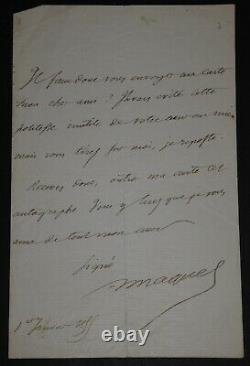 Il faut donc vous envoyer une carte
mon cher ami ? J'avais évité cette
politesse inutile de votre ami ou mien
mais vous tirez sur moi, je riposte.
Recevez donc, outre ma carte cet
autographe. Vous y lirez que je vous
aime de tout mon cœur
signé
Maquet
1er Janvier